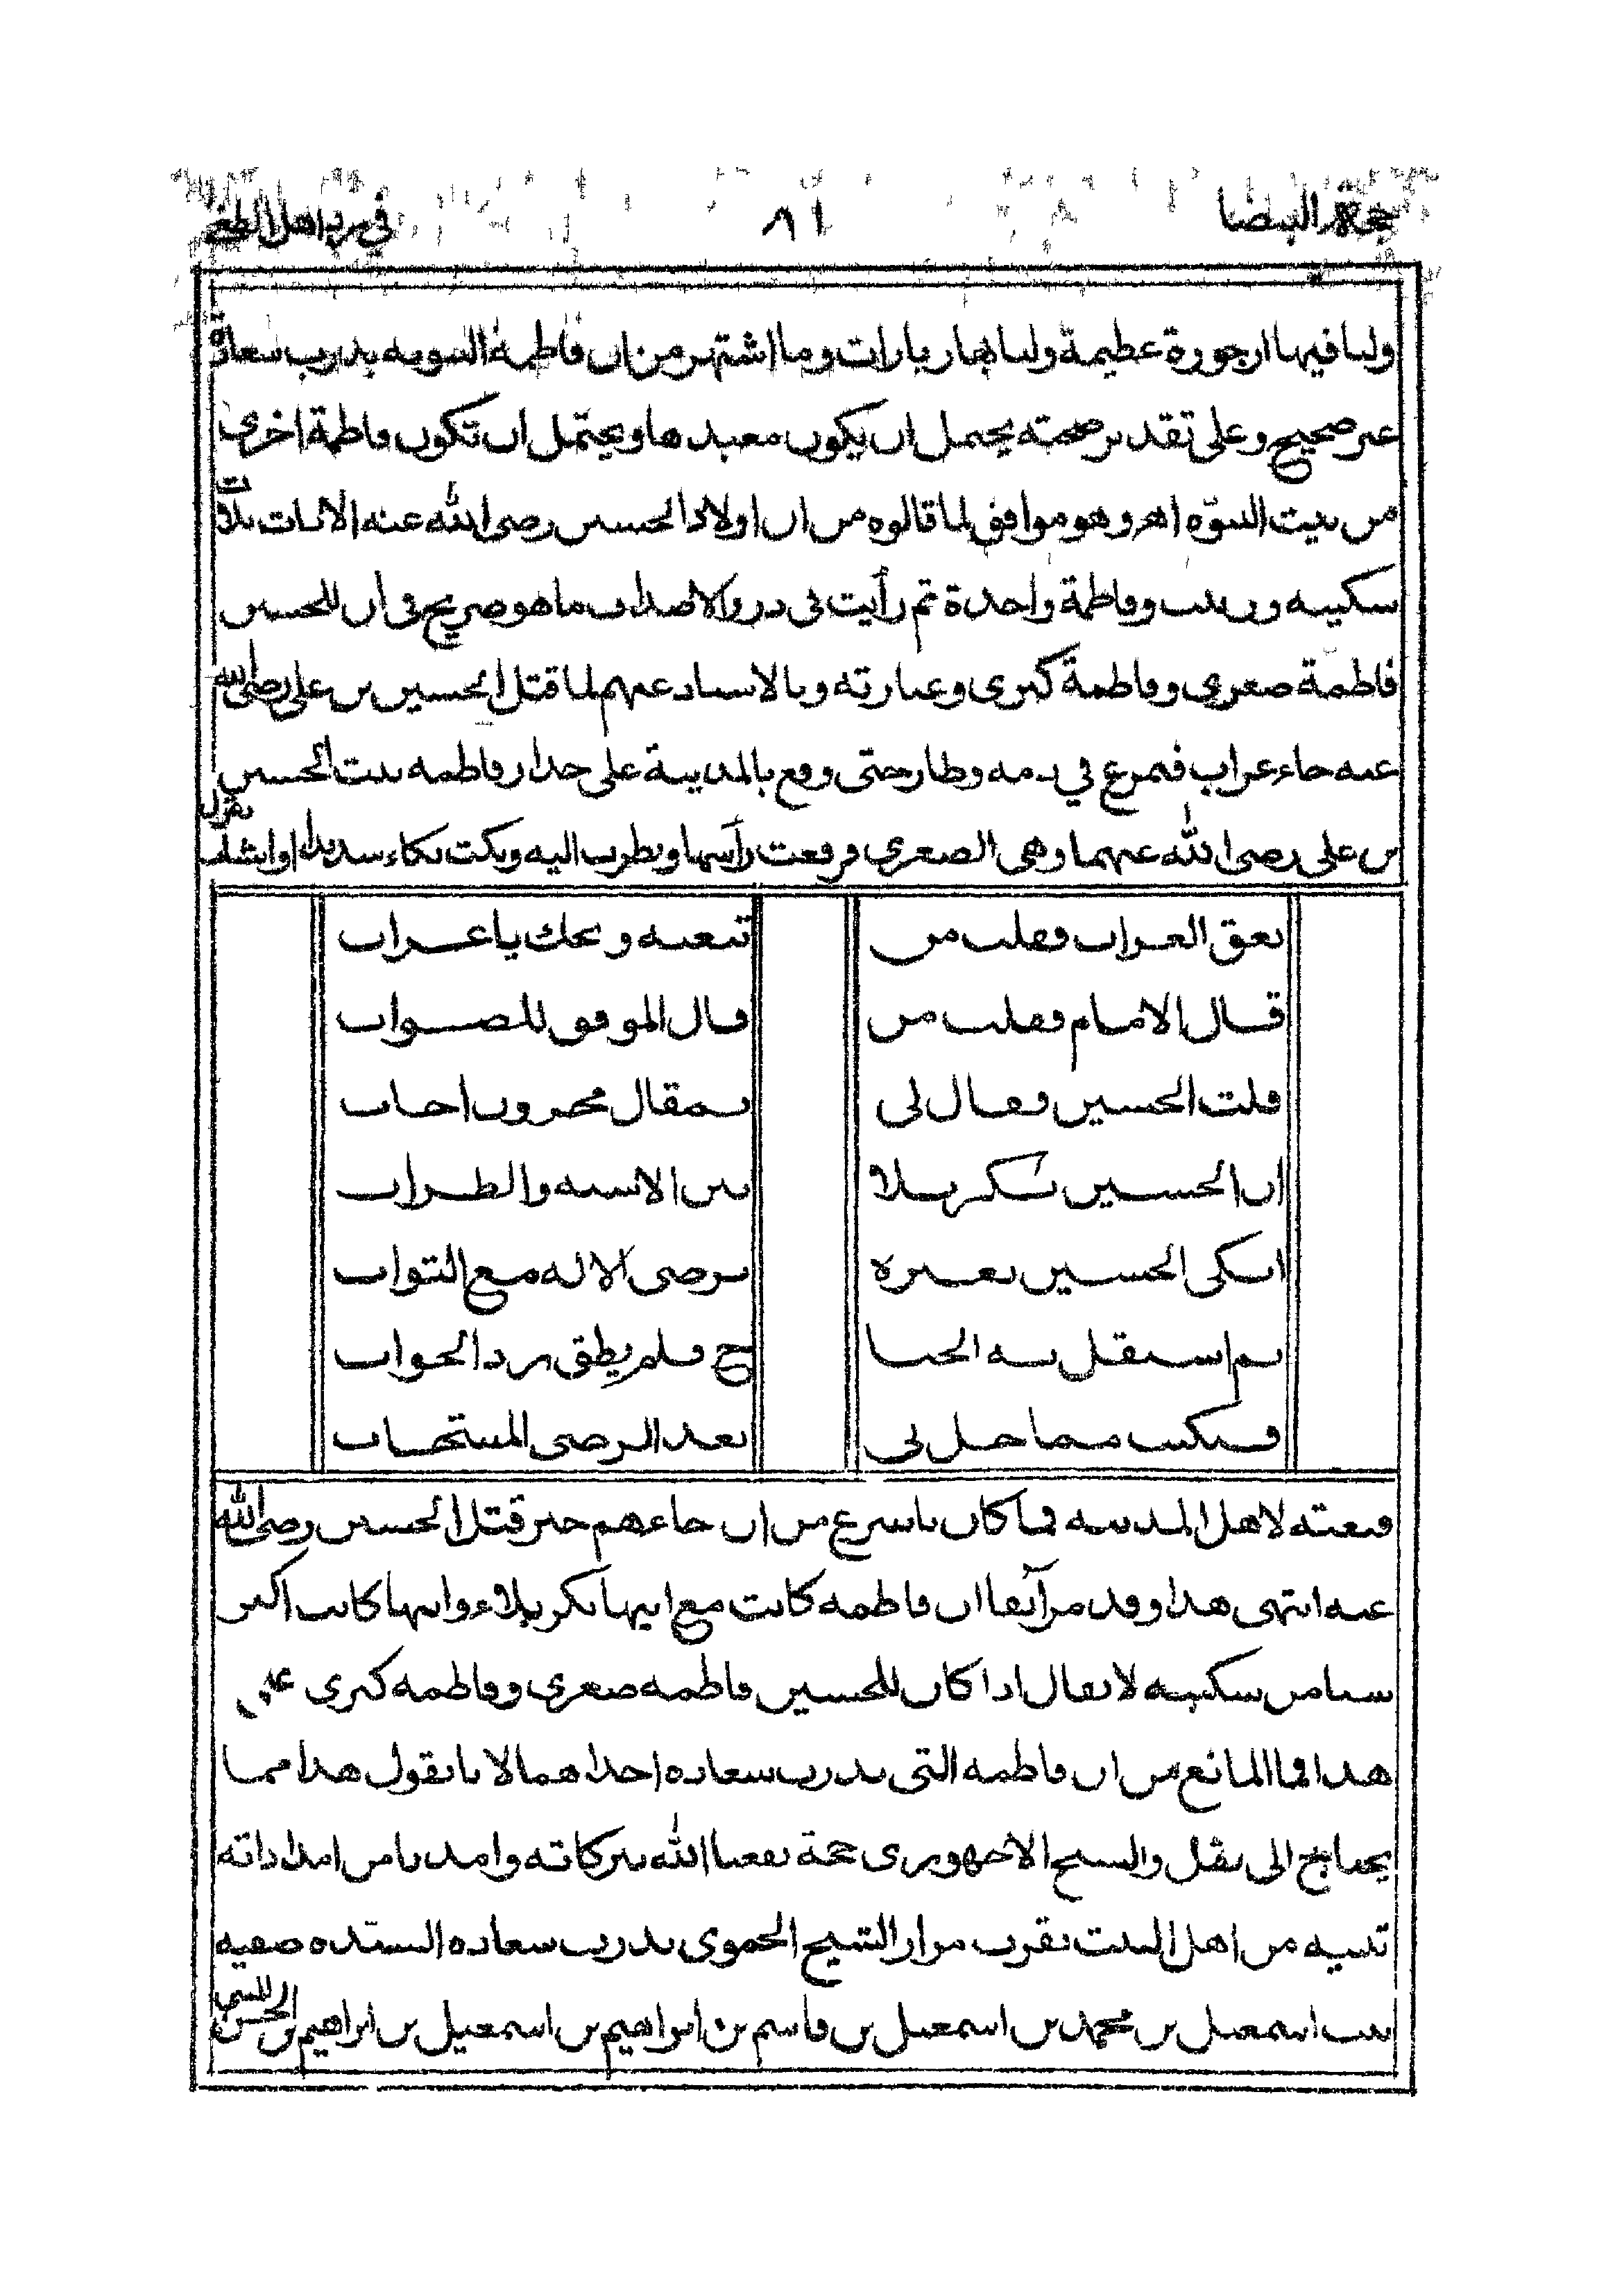 ٨١
ولنا فيها ارجوزة عظيمة ولنا بها زيارات وما اشتهر من ان فاطمة النبويه بدرب سعادة
غير صحيح وعلى تقدير صحته يحتمل ان يكون معبدها ويحتمل ان تكون فاطمة اخرى
من بيت النبوّه اهـ وهو موافق لما قالوه من ان اولاد الحسين رضى الله عنه الاناث ثلاث
سكينه وزينب وفاطمة واحدة ثم رأيت فى درر الاصداف ما هو صريح فى ان للحسين
فاطمة صغرى وفاطمة كبرى وعبارته وبالاسناد عنهم لما قتل الحسين بن على رضى الله
عنه جاء غراب فتمرغ في دمه وطار حتى وقع بالمدينة على جدار فاطمه بنت الحسين
بن على رضى الله عنهما وهى الصغرى فرفعت رأسها ونظرت اليه وبكت بكاء شديدا وانشأت تقول
نعق الغراب فقلت من تنعيه ويحك يا غراب
قال الامام فقلت من قال الموفق للصواب
قلت الحسين فقال لى بمقال محزون اجاب
ان الحسين بكربلا بين الاسنه والظراب
ابكى الحسين بعبره ترضى الاله مع الثواب
ثم استقل به الجنا ح فلم يطق رد الجواب
فبكيت مما حل بى بعد الرضى المستجاب
فنعته لاهل المدينه فما كان باسرع من ان جاءهم خبر قتل الحسين رضى الله
عنه انتهى هذا وقد مر آنفا ان فاطمه كانت مع ابيها بكربلاء وانها كانت اكبر
سنا من سكينه لا يقال اذا كان للحسين فاطمه صغرى وفاطمه كبرى
هذا فما المانع من ان فاطمه التى بدرب سعاده احداهما لانا نقول هذا مما
يحتاج الى نقل والشيخ الاجهورى حجة نفعنا الله ببركاته وامدنا من امداداته
تنبيه من اهل البيت بقرب مزار الشيخ الحموى بدرب سعاده السيّده صفيه
بنت اسمعيل بن محمد بن اسمعيل بن قاسم بن ابراهيم بن اسمعيل بن ابراهيم بن الحسن